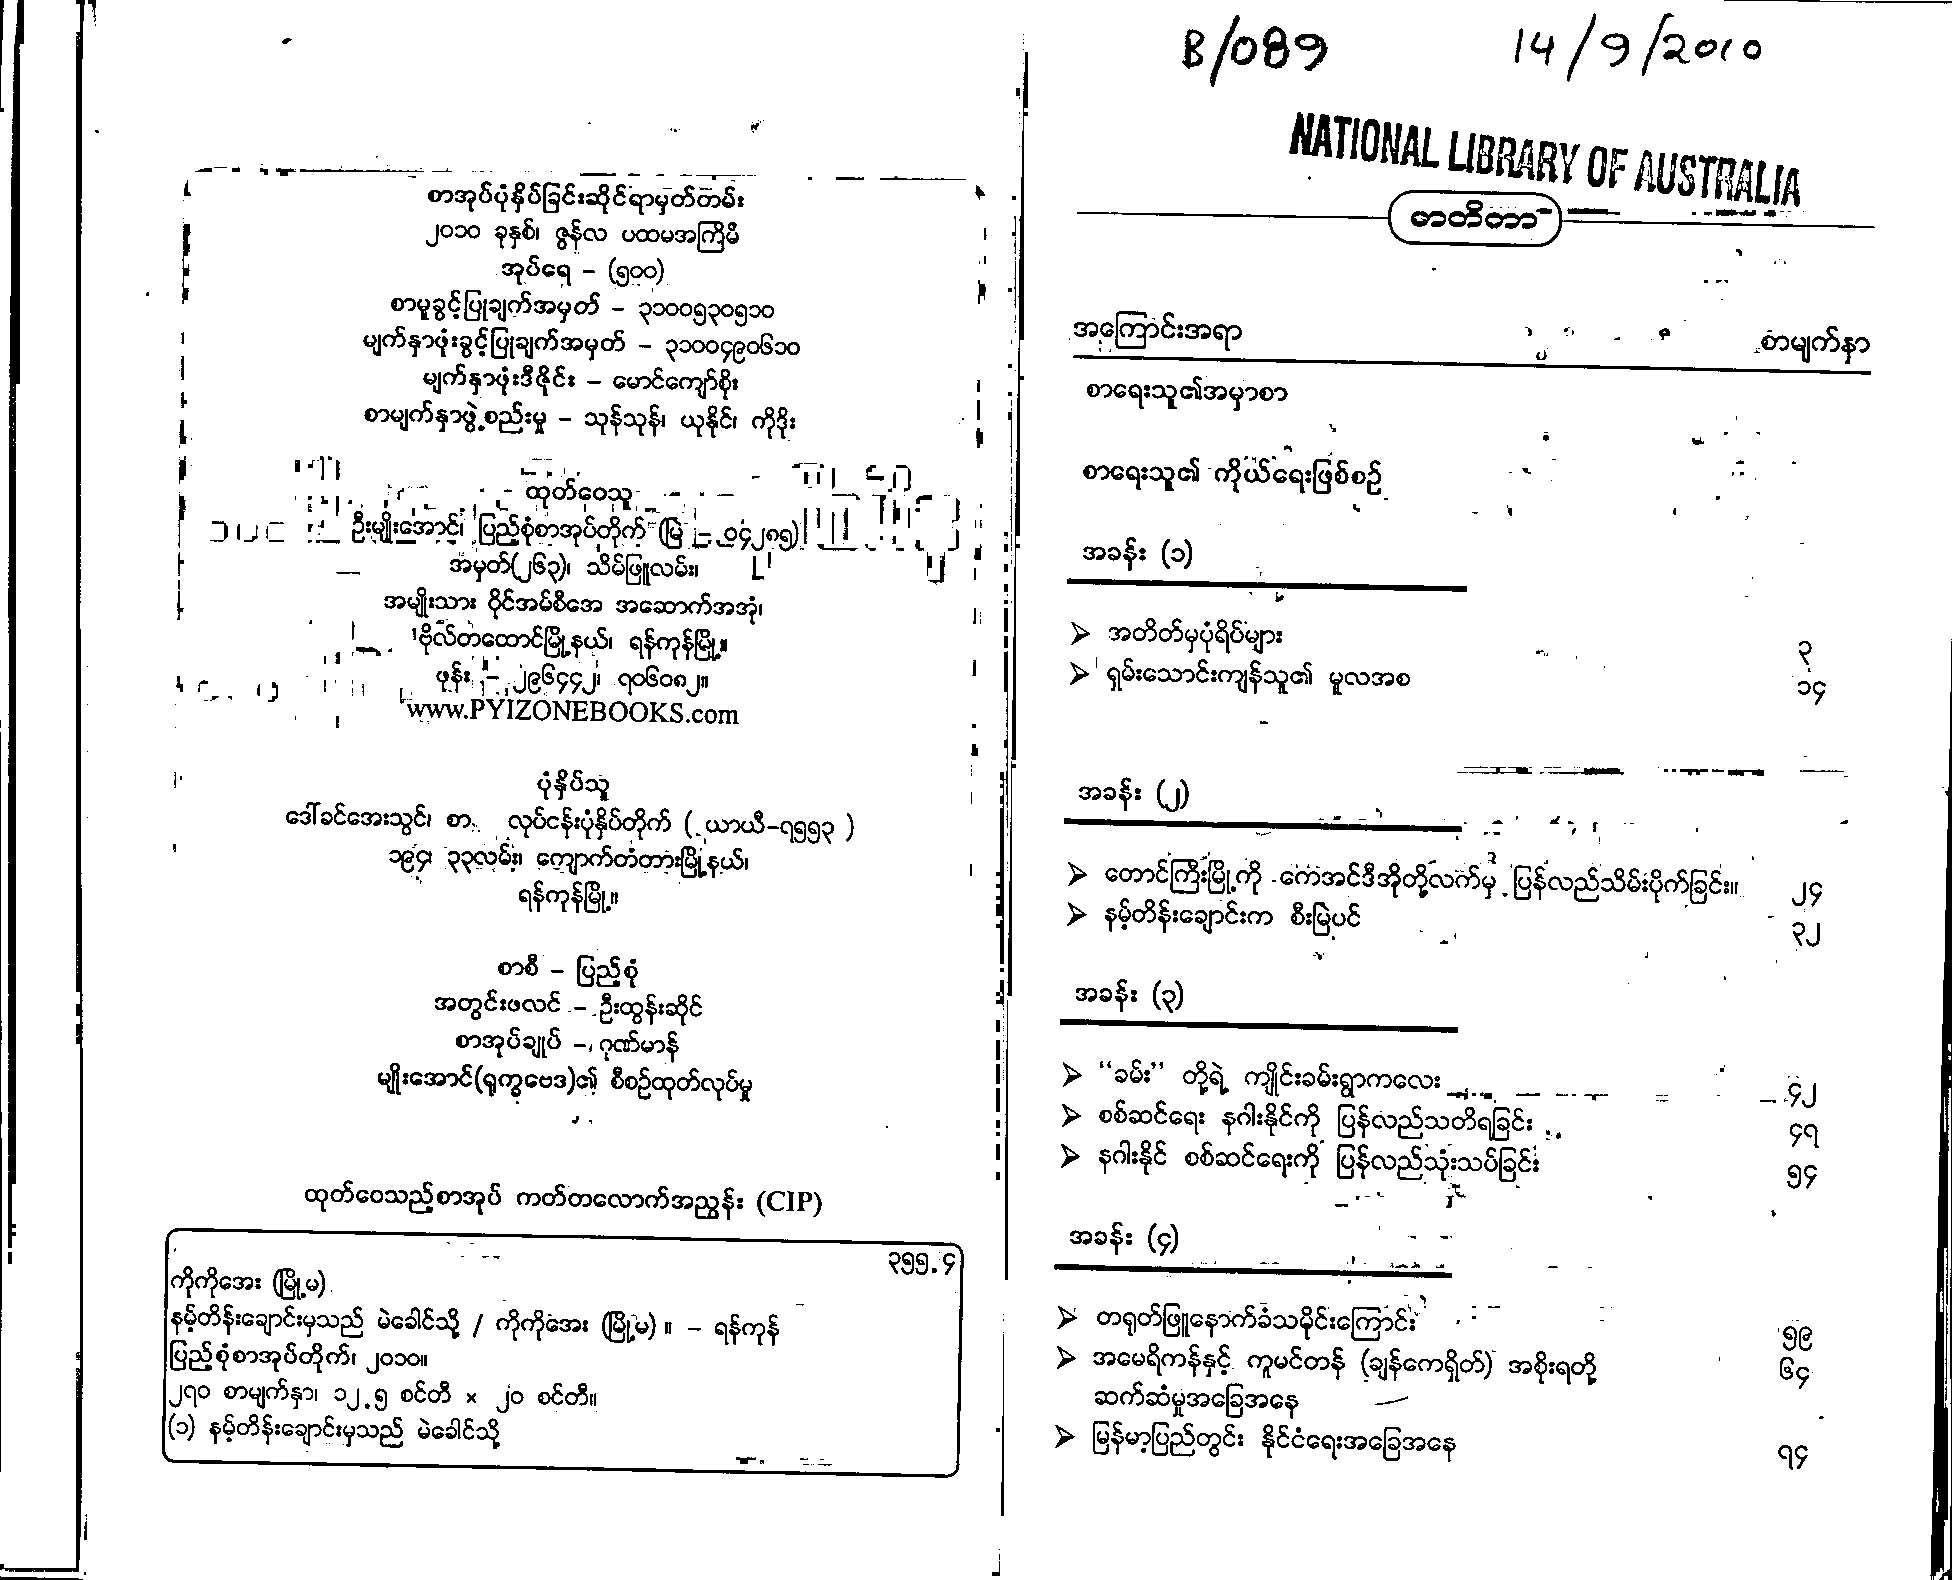 စာအုပ်ပုံနှိပ်ခြင်းဆိုင်ရာမှတ်တမ်း
၂၀၁၀ ခုနှစ်၊ ဇွန်လ ပထမအကြိမ်
အုပ်ရေ – (၅၀၀)
စာမူခွင့်ပြုချက်အမှတ် – ၃၁၀၀၅၃၀၅၁၀
မျက်နှာဖုံးခွင့်ပြုချက်အမှတ် – ၃၁၀၀၄၉၀၆၁၀
မျက်နှာဖုံးဒီဇိုင်း – မောင်ကျော်စိုး
စာမျက်နှာဖွဲ့စည်းမှု – သုန်သုန်၊ ယုနိုင်၊ ကိုဒိုး
ထုတ်ဝေသူ
ဦးမျိုးအောင်၊ ပြည့်စုံစာအုပ်တိုက် (မြဲ – ၀၄၂၈၅)
အမှတ်(၂၆၃)၊ သိမ်ဖြူလမ်း၊
အမျိုးသား ဝိုင်အမ်စီအေ အဆောက်အအုံ၊
ဗိုလ်တထောင်မြို့နယ်၊ ရန်ကုန်မြို့။
ဖုန်း – ၂၉၆၄၄၂၊ ၇၀၆၀၈၂။
www.PYIZONEBOOKS.com
ပုံနှိပ်သူ
ဒေါ်ခင်အေးသွင်၊ စာ လုပ်ငန်းပုံနှိပ်တိုက် ( ယာယီ–၇၅၅၃ )
၁၉၄၊ ၃၃လမ်း၊ ကျောက်တံတားမြို့နယ်၊
ရန်ကုန်မြို့။
စာစီ – ပြည့်စုံ
အတွင်းဖလင် – ဦးထွန်းဆိုင်
စာအုပ်ချုပ် – ဂုဏ်မာန်
မျိုးအောင်(ရုက္ခဗေဒ)၏ စီစဉ်ထုတ်လုပ်မှု
ထုတ်ဝေသည့်စာအုပ် ကတ်တလောက်အညွှန်း (CIP)
၃၅၅.၄
ကိုကိုအေး (မြို့မ)
နမ့်တိန်းချောင်းမှသည် မဲခေါင်သို့ / ကိုကိုအေး (မြို့မ)။ – ရန်ကုန်
ပြည့်စုံစာအုပ်တိုက်၊ ၂၀၁၀။
၂၇၀ စာမျက်နှာ၊ ၁၂.၅ စင်တီ × ၂၀ စင်တီ။
(၁) နမ့်တိန်းချောင်းမှသည် မဲခေါင်သို့
B/089 14/9/2010
NATIONAL LIBRARY OF AUSTRALIA
မာတိကာ
အကြောင်းအရာ စာမျက်နှာ
စာရေးသူ၏အမှာစာ
စာရေးသူ၏ ကိုယ်ရေးဖြစ်စဉ်
အခန်း (၁)
➤ အတိတ်မှပုံရိပ်များ ၃
➤ ရှမ်းသောင်းကျန်သူ၏ မူလအစ ၁၄
အခန်း (၂)
➤ တောင်ကြီးမြို့ကို ကေအင်ဒီအိုတို့လက်မှ ပြန်လည်သိမ်းပိုက်ခြင်း။ ၂၄
➤ နမ့်တိန်းချောင်းက စီးမြဲပင် ၃၂
အခန်း (၃)
➤ “ခမ်း” တို့ရဲ့ ကျိုင်းခမ်းရွာကလေး ၄၂
➤ စစ်ဆင်ရေး နဂါးနိုင်ကို ပြန်လည်သတိရခြင်း ၄၇
➤ နဂါးနိုင် စစ်ဆင်ရေးကို ပြန်လည်သုံးသပ်ခြင်း ၅၄
အခန်း (၄)
➤ တရုတ်ဖြူနောက်ခံသမိုင်းကြောင်း ၅၉
➤ အမေရိကန်နှင့် ကူမင်တန် (ချန်ကေရှိတ်) အစိုးရတို့ ၆၄
ဆက်ဆံမှုအခြေအနေ
➤ မြန်မာ့ပြည်တွင်း နိုင်ငံရေးအခြေအနေ ၇၄